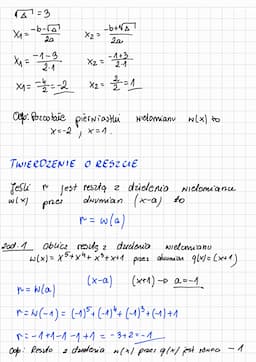 √Δ = 3
x₁ = (-b-√Δ)/2a    x₂ = (-b+√Δ)/2a
x₁ = (-1-3)/(2·1)    x₂ = (-1+3)/(2·1)
x₁ = -4/2 = -2    x₂ = 2/2 = 1
Odp: Pozostałe pierwiastki wielomianu w(x) to
x=-2, x=1.
TWIERDZENIE O RESZCIE
Jeśli r jest resztą z dzielenia wielomianu
w(x) przez dwumian (x-a) to
r = w(a)
Zad.1 Oblicz resztę z dzielenia wielomianu
w(x) = x⁵+x⁴+x³+x+1 przez dwumian q(x)=(x+1)
(x-a)    (x+1) → a=-1
r = w(a)
r = w(-1) = (-1)⁵+(-1)⁴+(-1)³+(-1)+1
r = -1+1-1-1+1 = -3+2=-1
Odp: Reszta z dzielenia w(x) przez q(x) jest równa -1